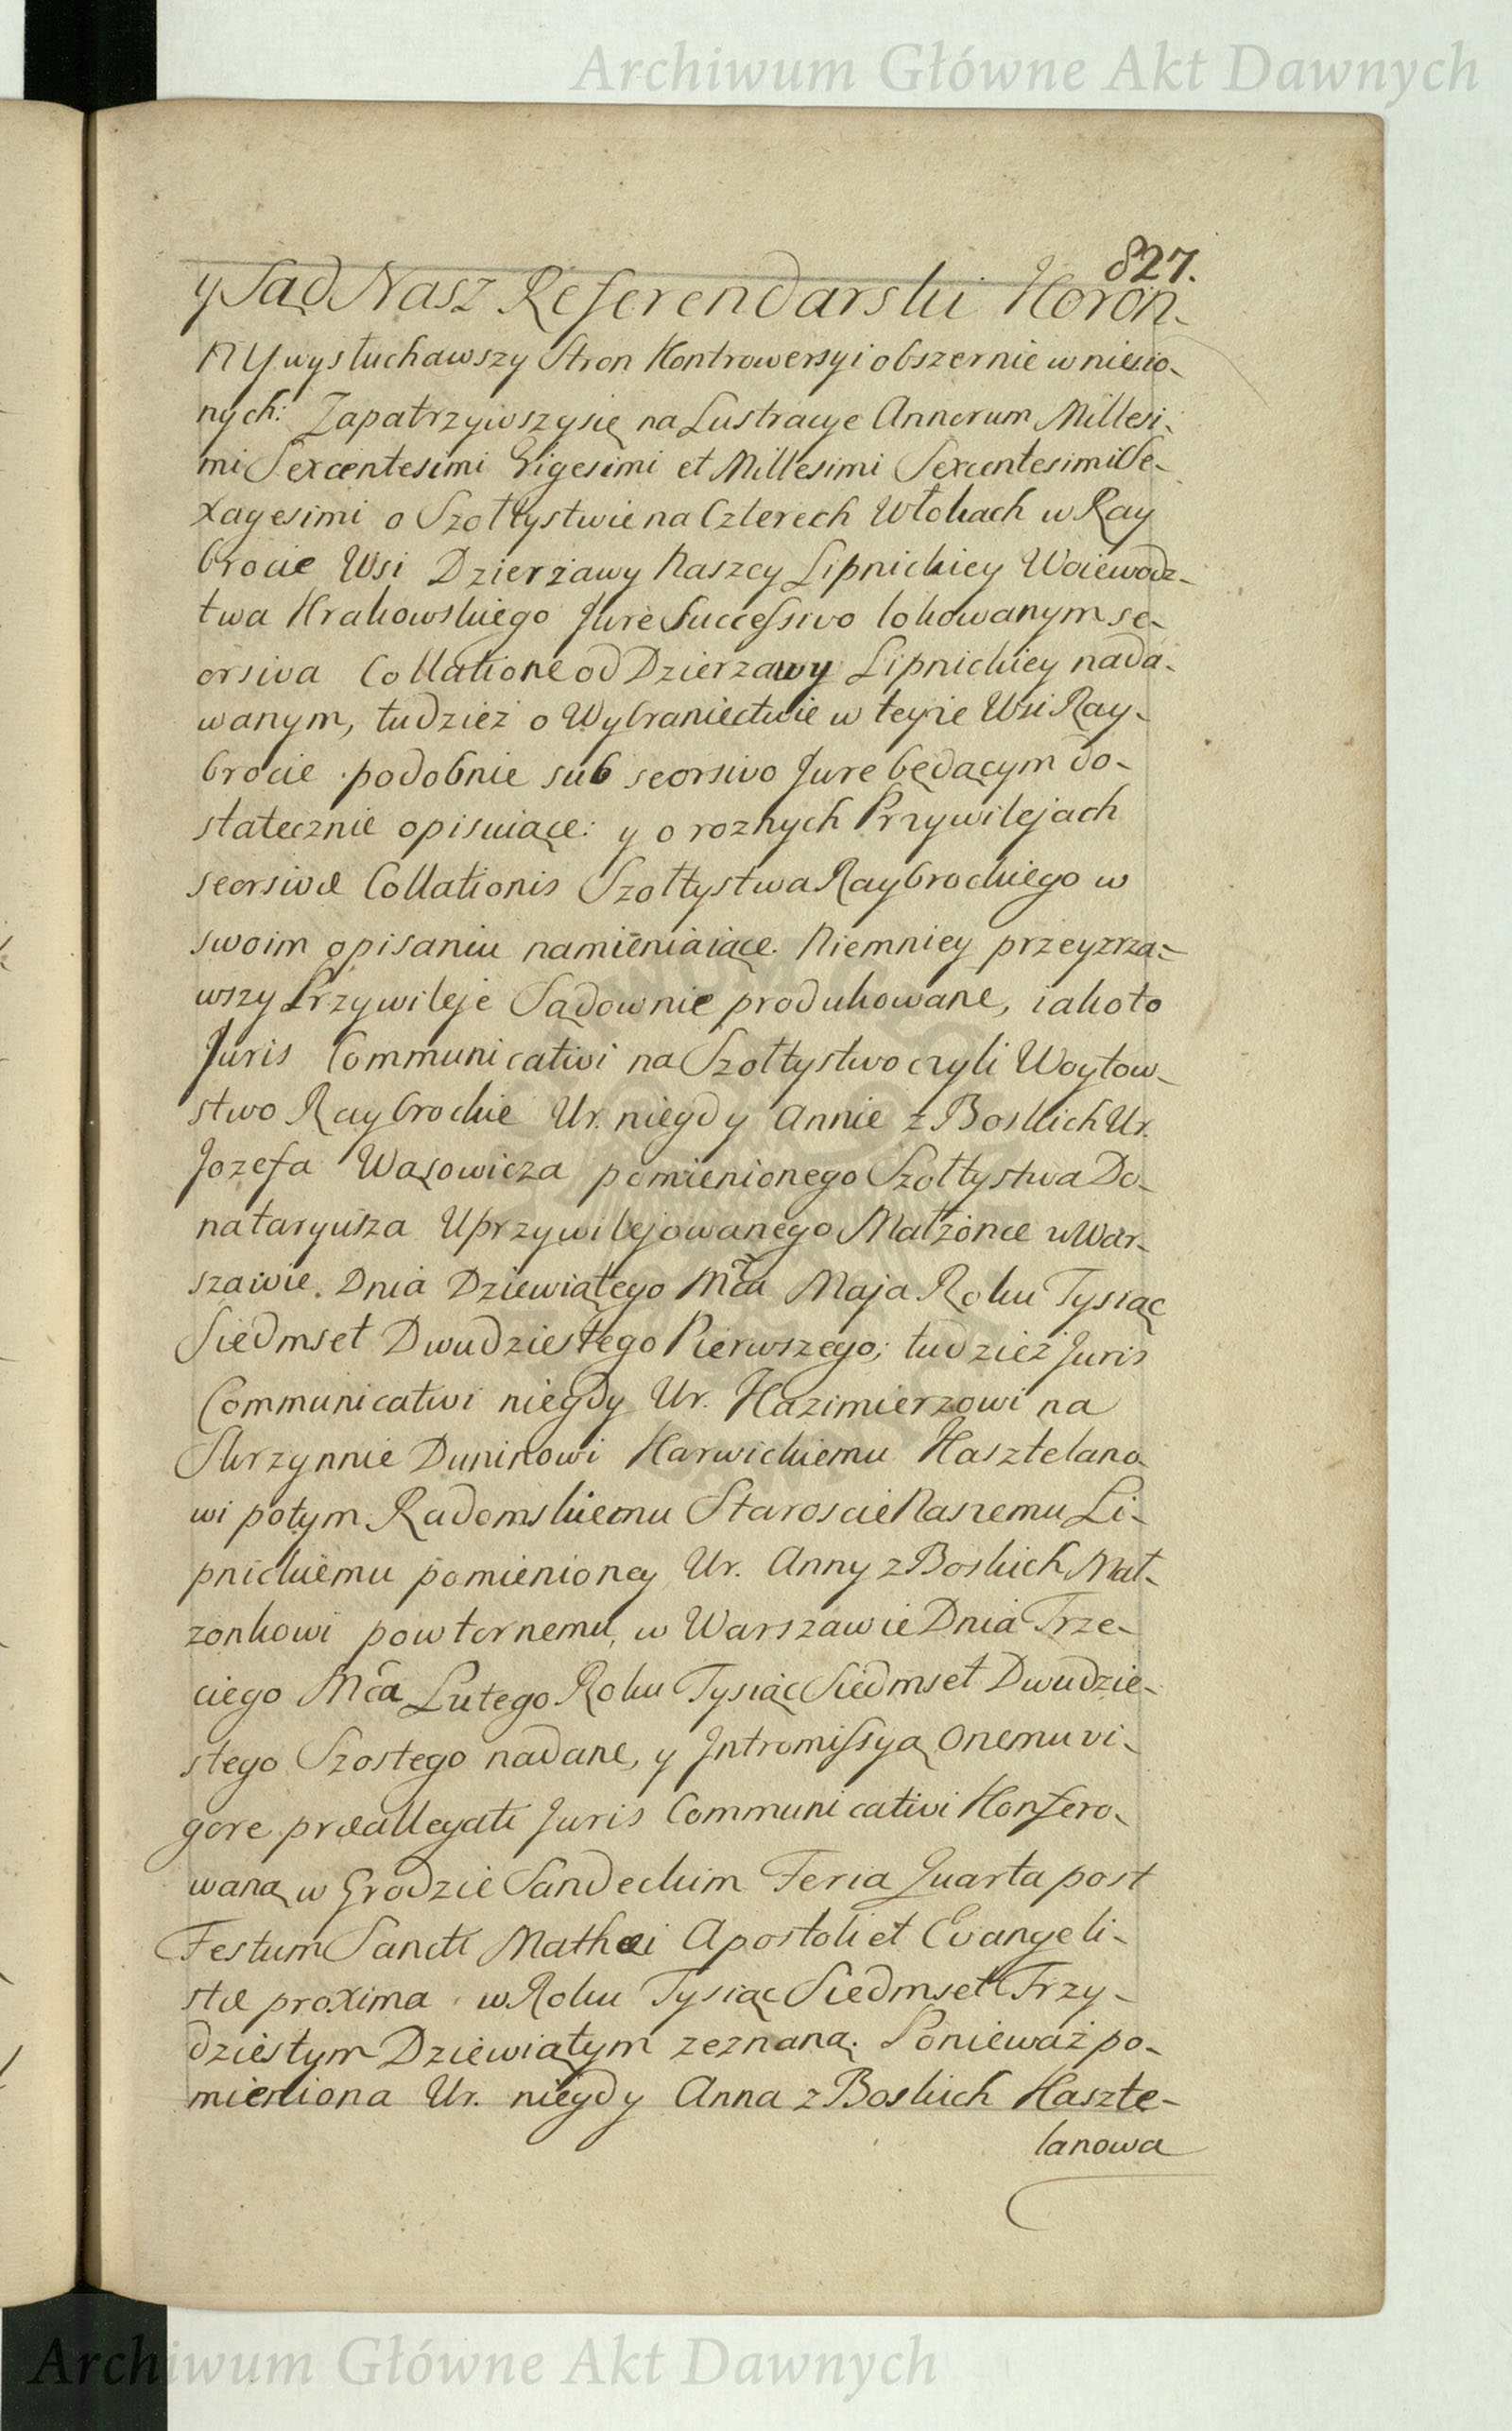 Archiwum Główne Akt Dawnych
827.
y Sąd Nasz Referendarski Koron-
ny wysłuchawszy Stron Kontrowersyi obszernie wniesio-
nych: Zapatrzywszysię na Lustracye Annorum Millesi-
mi Sexcentesimi Vigesimi et Millesimi Sexcentesimi Se-
xagesimi o Szołtystwie na Czterech Włokach w Ray
brocie Wsi Dzierżawy Naszey Lipnickiey Woiewodz-
twa Krakowskiego Jure Successivo lokowanym se-
orsiva Collatione od Dzierzawy Lipnickiey nada-
wanym, tudzież o Wybraniectwie w teyże Wsi Ray-
brocie podobnie sub seorsivo Jure będącym do-
statecznie opisuiące: y o roznych Przywilejach
seorsivæ Collationis Szołtystwa Raybrockiego w
swoim opisaniu namieniaiące. Niemniey przeyzrza-
wszy Przywileje Sądownie produkowane, iakoto
Juris Communicativi na Szołtystwo czyli Woytow-
stwo Raybrockie Ur. niegdy Annie z Boskich Ur.
Jozefa Wąsowicza pomienionego Szołtystwa Do-
nataryusza Uprzywilejowanego Małżonce w War-
szawie. Dnia Dziewiątego Mca Maja Roku Tysiąc
Siedmset Dwudziestego Pierwszego; tudzież Juris
Communicativi niegdy Ur. Kazimierzowi na
Skrzynnie Duninowi Karwickiemu Kasztelano-
wi potym Radomskiemu Staroscie Naszemu Li-
pnickiemu pomienioney Ur. Anny z Boskich Mał-
zonkowi powtornemu, w Warszawie Dnia Trze-
ciego Mca Lutego Roku Tysiąc Siedmset Dwudzie-
stego Szostego nadane, y Intromissyą Onemu vi-
gore præallegati Juris Communicativi Konfero-
waną w Grodzie Sandeckim Feria Quarta post
Festum Sancti Mathæi Apostoli et Evangeli-
stæ proxima w Roku Tysiąc Siedmset Trzy-
dziestym Dziewiątym zeznaną. Ponieważ po-
mieniona Ur. niegdy Anna z Boskich Kaszte-
lanowa
Archiwum Główne Akt Dawnych